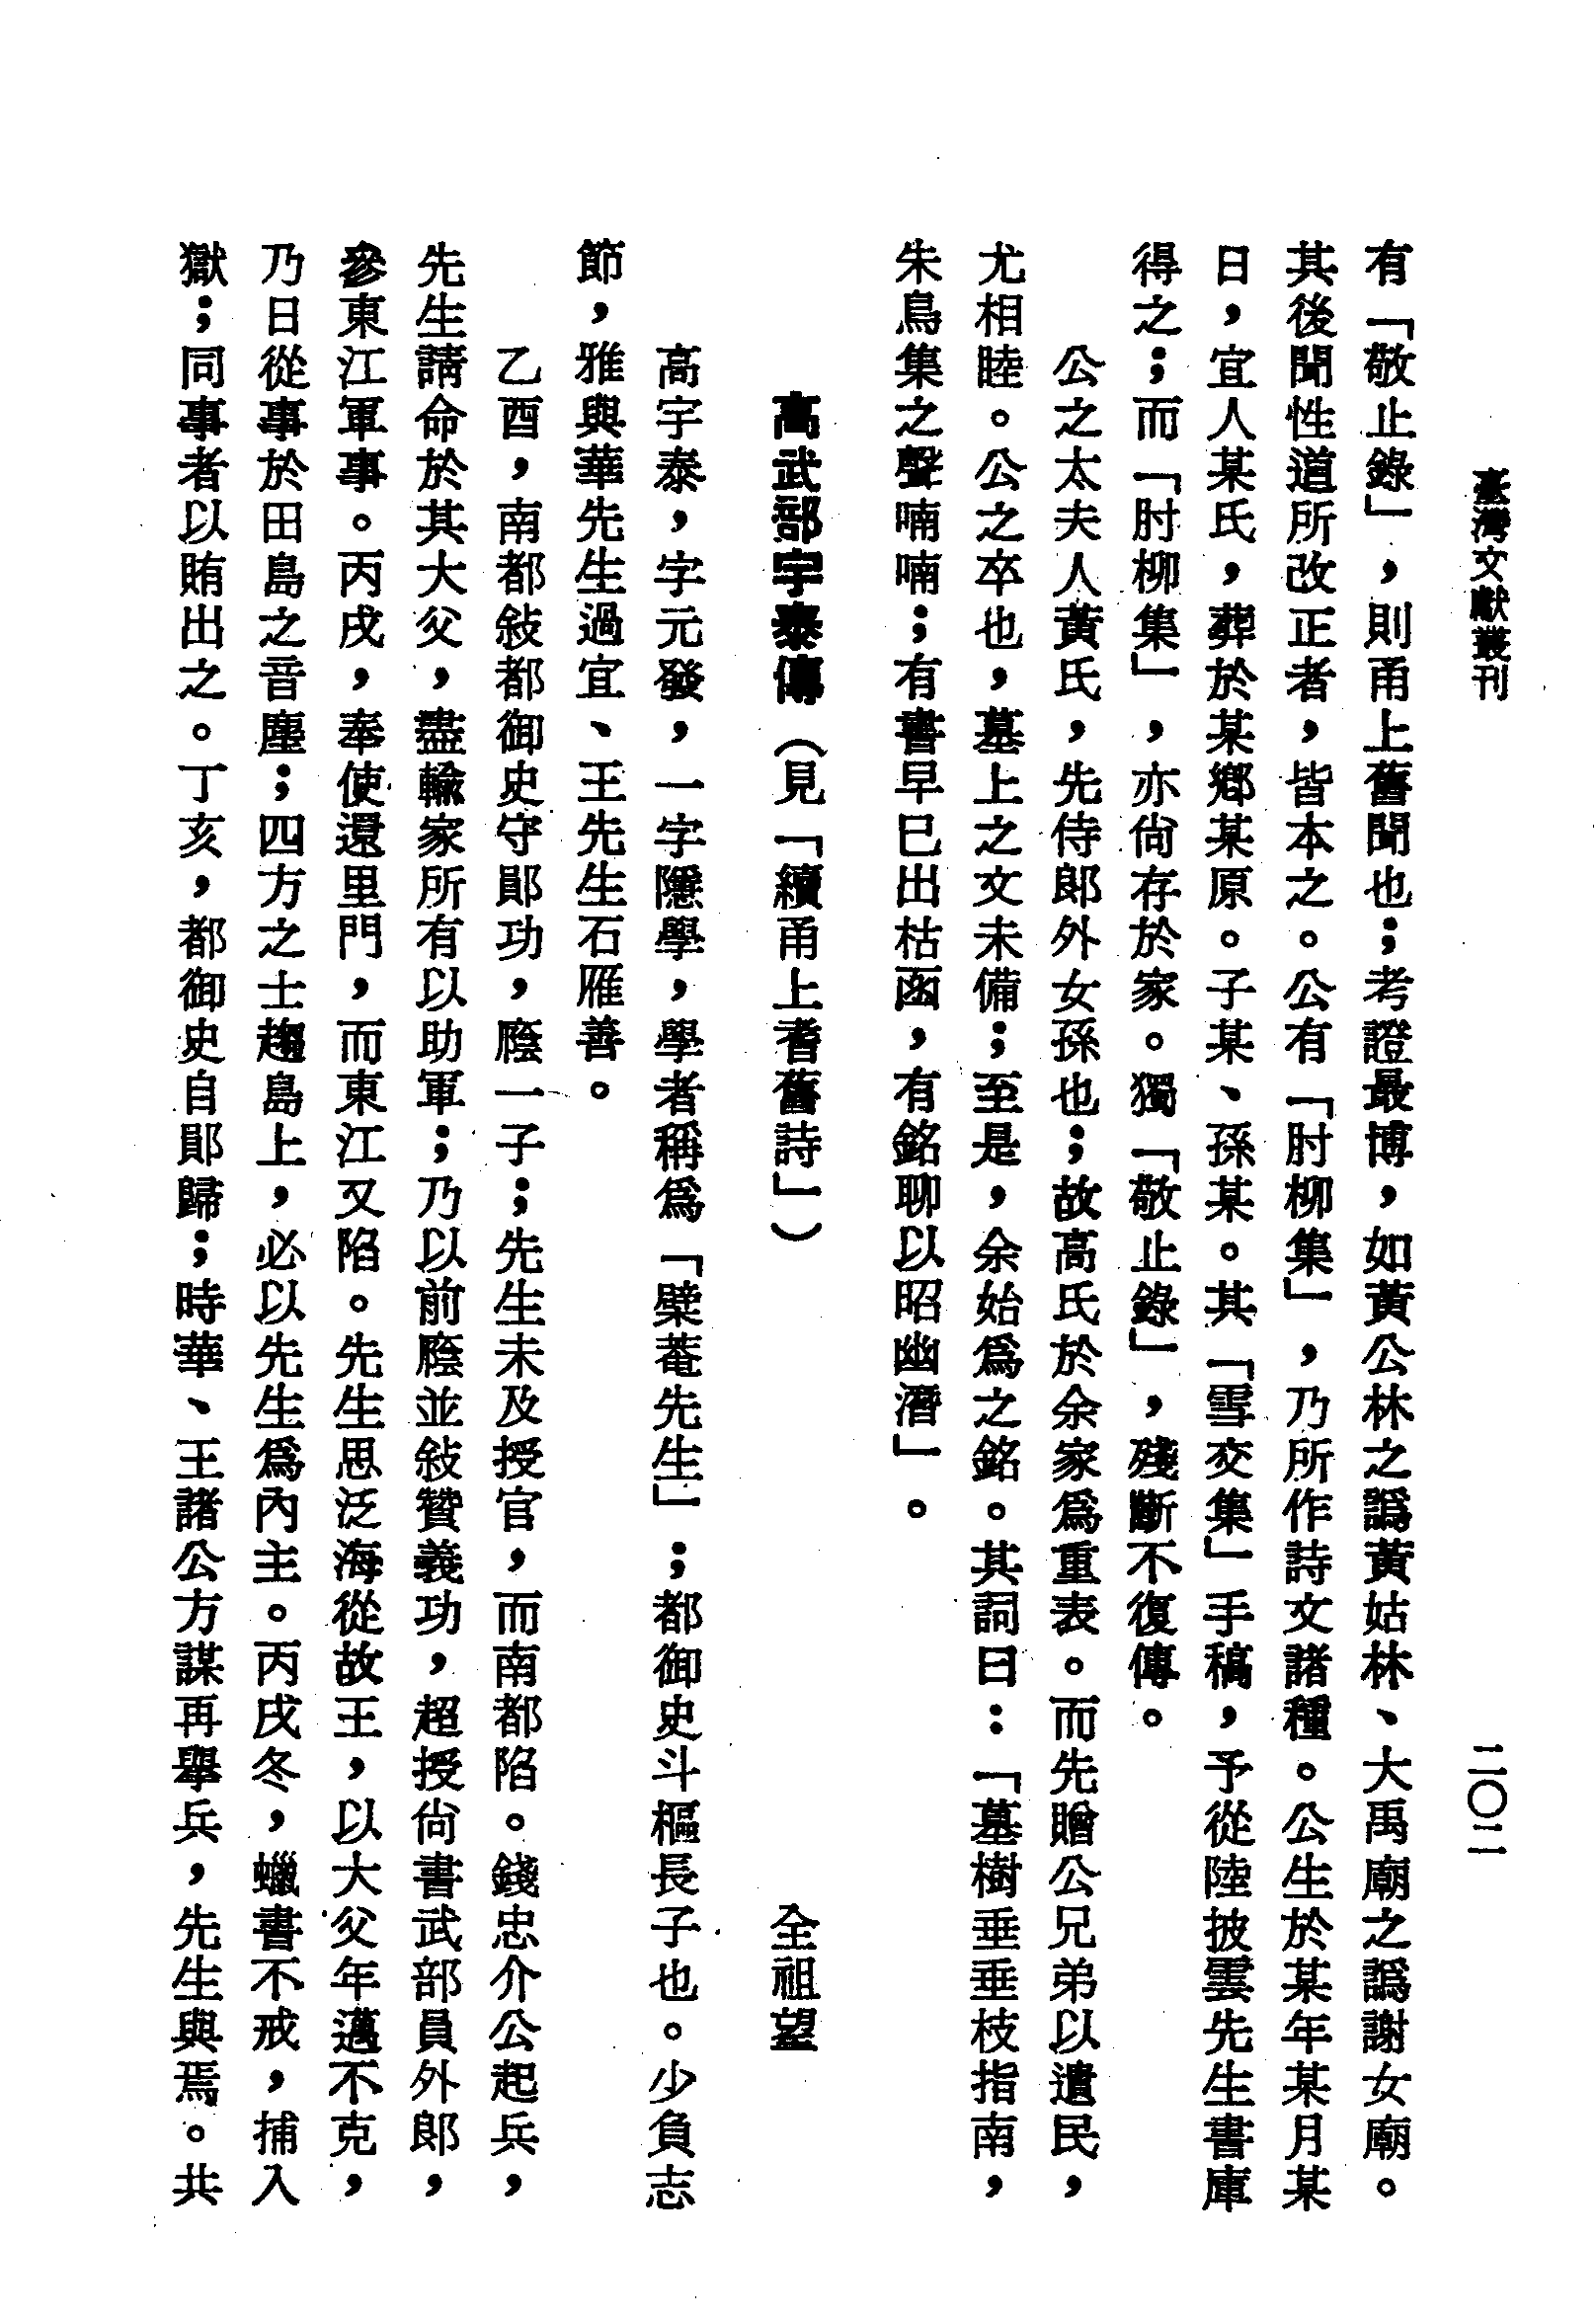 臺灣文獻叢刊
二〇二
有「敬止錄」，則甬上舊聞也；考證最博，如黃公林之譌黃姑林、大禹廟之譌謝女廟。
其後聞性道所改正者，皆本之。公有「肘柳集」，乃所作詩文諸種。公生於某年某月某
日，宜人某氏，葬於某鄉某原。子某、孫某。其「雪交集」手稿，予從陸披雲先生書庫
得之；而「肘柳集」，亦尙存於家。獨「敬止錄」，殘斷不復傳。
公之太夫人黃氏，先侍郎外女孫也；故高氏於余家爲重表。而先贈公兄弟以遺民，
尤相睦。公之卒也，墓上之文未備；至是，余始爲之銘。其詞曰：「墓樹垂垂枝指南，
朱鳥集之聲喃喃；有書早已出枯函，有銘聊以昭幽潛」。
高武部宇泰傳（見「續甬上耆舊詩」）
全祖望
高宇泰，字元發，一字隱學，學者稱爲「檗菴先生」；都御史斗樞長子也。少負志
節，雅與華先生過宜、王先生石雁善。
乙酉，南都敍都御史守鄖功，廕一子；先生未及授官，而南都陷。錢忠介公起兵，
先生請命於其大父，盡輸家所有以助軍；乃以前廕並敍贊義功，超授尙書武部員外郎，
參東江軍事。丙戌，奉使還里門，而東江又陷。先生思泛海從故王，以大父年邁不克，
乃日從事於田島之音塵；四方之士趨島上，必以先生爲內主。丙戌冬，蠟書不戒，捕入
獄；同事者以賄出之。丁亥，都御史自鄖歸；時華、王諸公方謀再舉兵，先生與焉。共